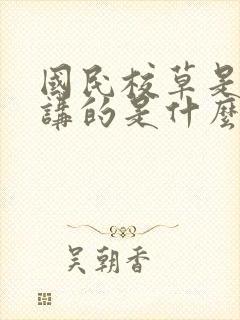 國民校草是
講的是什麼
吳朝香